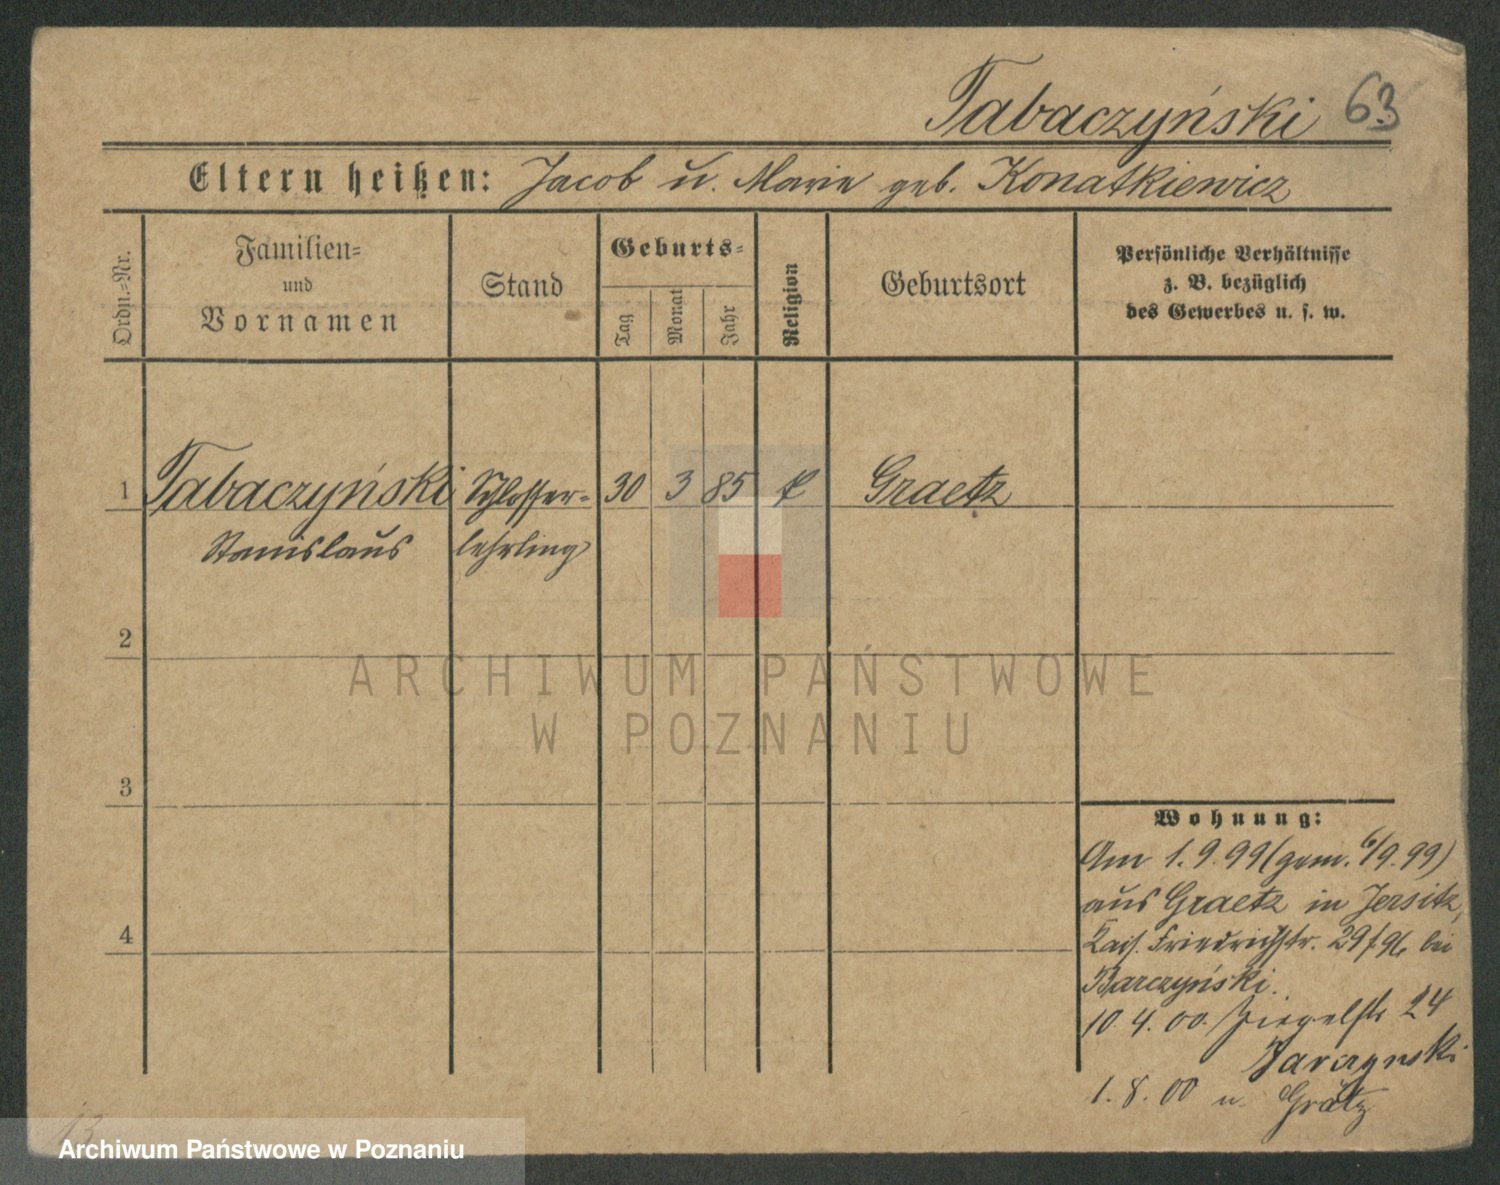 Tabaczyński 63
Eltern heißen: Jacob u. Marie geb. Konatkiewicz
Ordn.-Nr.
Familien-
und
Vornamen
Stand
Geburts-
Tag
Monat
Jahr
Religion
Geburtsort
Persönliche Verhältnisse
z. B. bezüglich
des Gewerbes u. s. w.
1 Tabaczyński Schlosser- 30 3 85 k Graetz
Stanislaus lehrling
2
ARCHIWUM PAŃSTWOWE
W POZNANIU
3
Wohnung:
Am 1.9.99 (gem. 6/9.99)
aus Graetz in Jersitz,
Kais. Friedrichstr. 29 bei
4
Barczyński.
10.4.00. Ziegelstr 24
Barczynski
1.8.00 n. Grätz
13
Archiwum Państwowe w Poznaniu